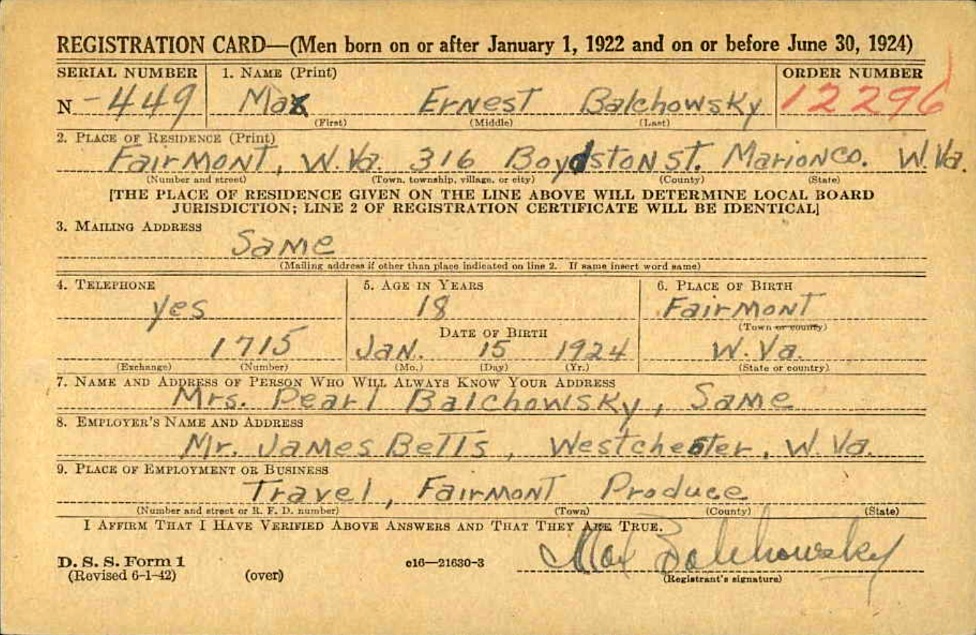 REGISTRATION CARD—(Men born on or after January 1, 1922 and on or before June 30, 1924)
SERIAL NUMBER 1. NAME (Print) ORDER NUMBER
N -449 Max Ernest Balchowsky 12296
(First) (Middle) (Last)
2. PLACE OF RESIDENCE (Print)
Fairmont, W.Va. 316 Boydston St. Marion Co. W.Va.
(Number and street) (Town, township, village, or city) (County) (State)
[THE PLACE OF RESIDENCE GIVEN ON THE LINE ABOVE WILL DETERMINE LOCAL BOARD
JURISDICTION; LINE 2 OF REGISTRATION CERTIFICATE WILL BE IDENTICAL]
3. MAILING ADDRESS
Same
(Mailing address if other than place indicated on line 2. If same insert word same)
4. TELEPHONE 5. AGE IN YEARS 6. PLACE OF BIRTH
yes 18 Fairmont
DATE OF BIRTH (Town or county)
1715 Jan. 15 1924 W.Va.
(Exchange) (Number) (Mo.) (Day) (Yr.) (State or country)
7. NAME AND ADDRESS OF PERSON WHO WILL ALWAYS KNOW YOUR ADDRESS
Mrs. Pearl Balchowsky, Same
8. EMPLOYER'S NAME AND ADDRESS
Mr. James Betts, Westchester, W.Va.
9. PLACE OF EMPLOYMENT OR BUSINESS
Travel, Fairmont Produce
(Number and street or R. F. D. number) (Town) (County) (State)
I AFFIRM THAT I HAVE VERIFIED ABOVE ANSWERS AND THAT THEY ARE TRUE.
Max Balchowsky
D. S. S. Form 1 c16—21630-3
(Revised 6-1-42) (over) (Registrant's signature)